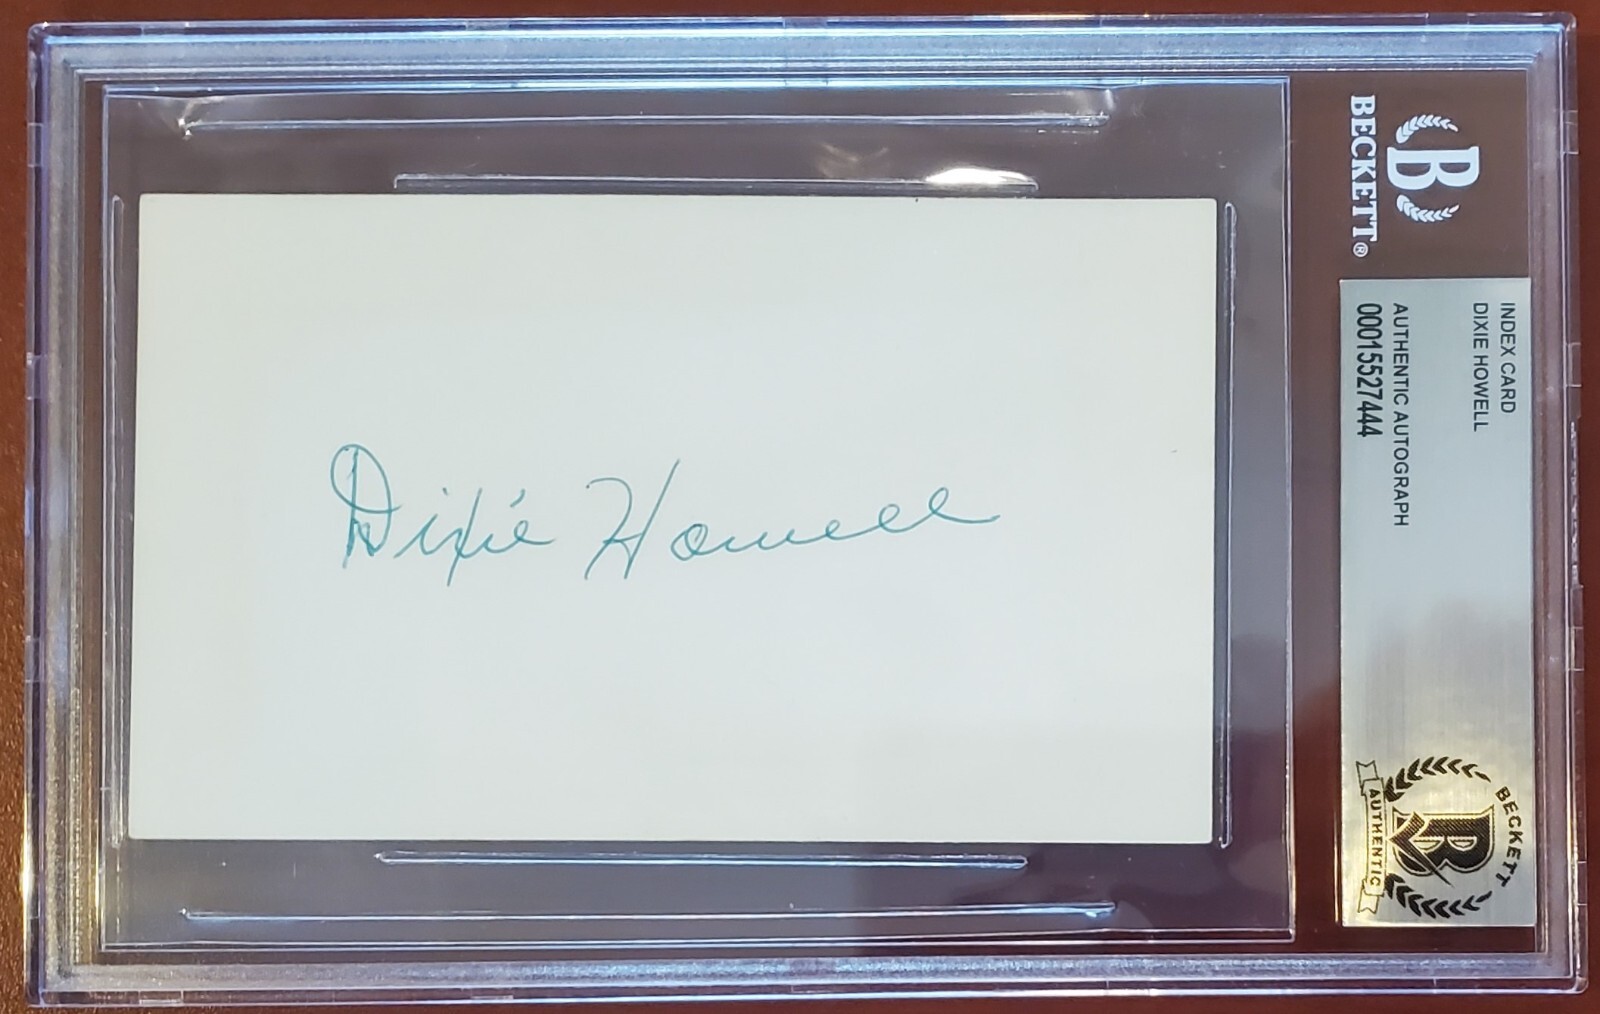 Dixie Howell
B
BECKETT®
INDEX CARD
DIXIE HOWELL
AUTHENTIC AUTOGRAPH
00015527444
BECKETT
B
AUTHENTIC